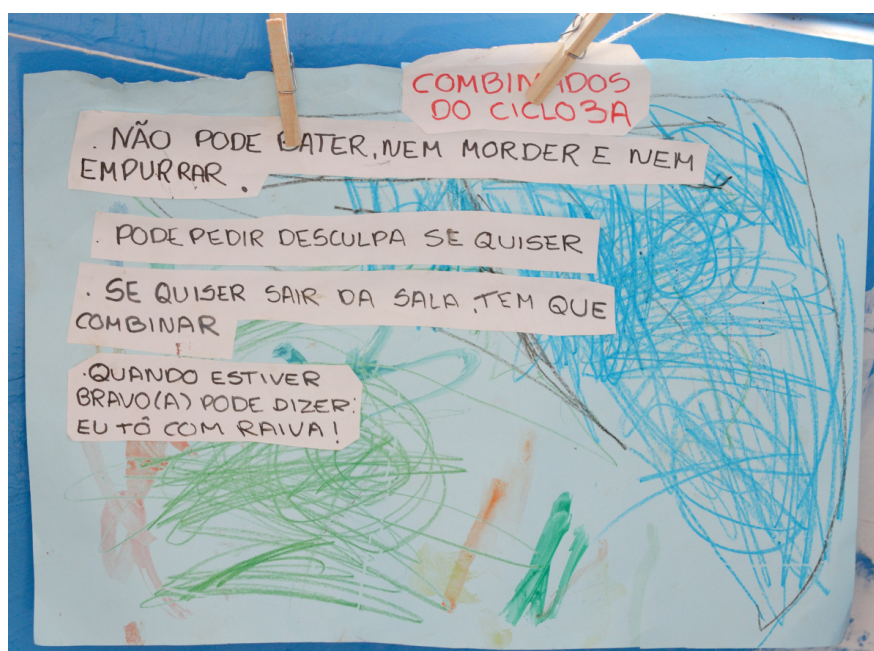 COMBINADOS
DO CICLO 3A
. NÃO PODE BATER, NEM MORDER E NEM
EMPURRAR.
. PODE PEDIR DESCULPA SE QUISER
. SE QUISER SAIR DA SALA, TEM QUE
COMBINAR
. QUANDO ESTIVER
BRAVO(A) PODE DIZER:
EU TÔ COM RAIVA!